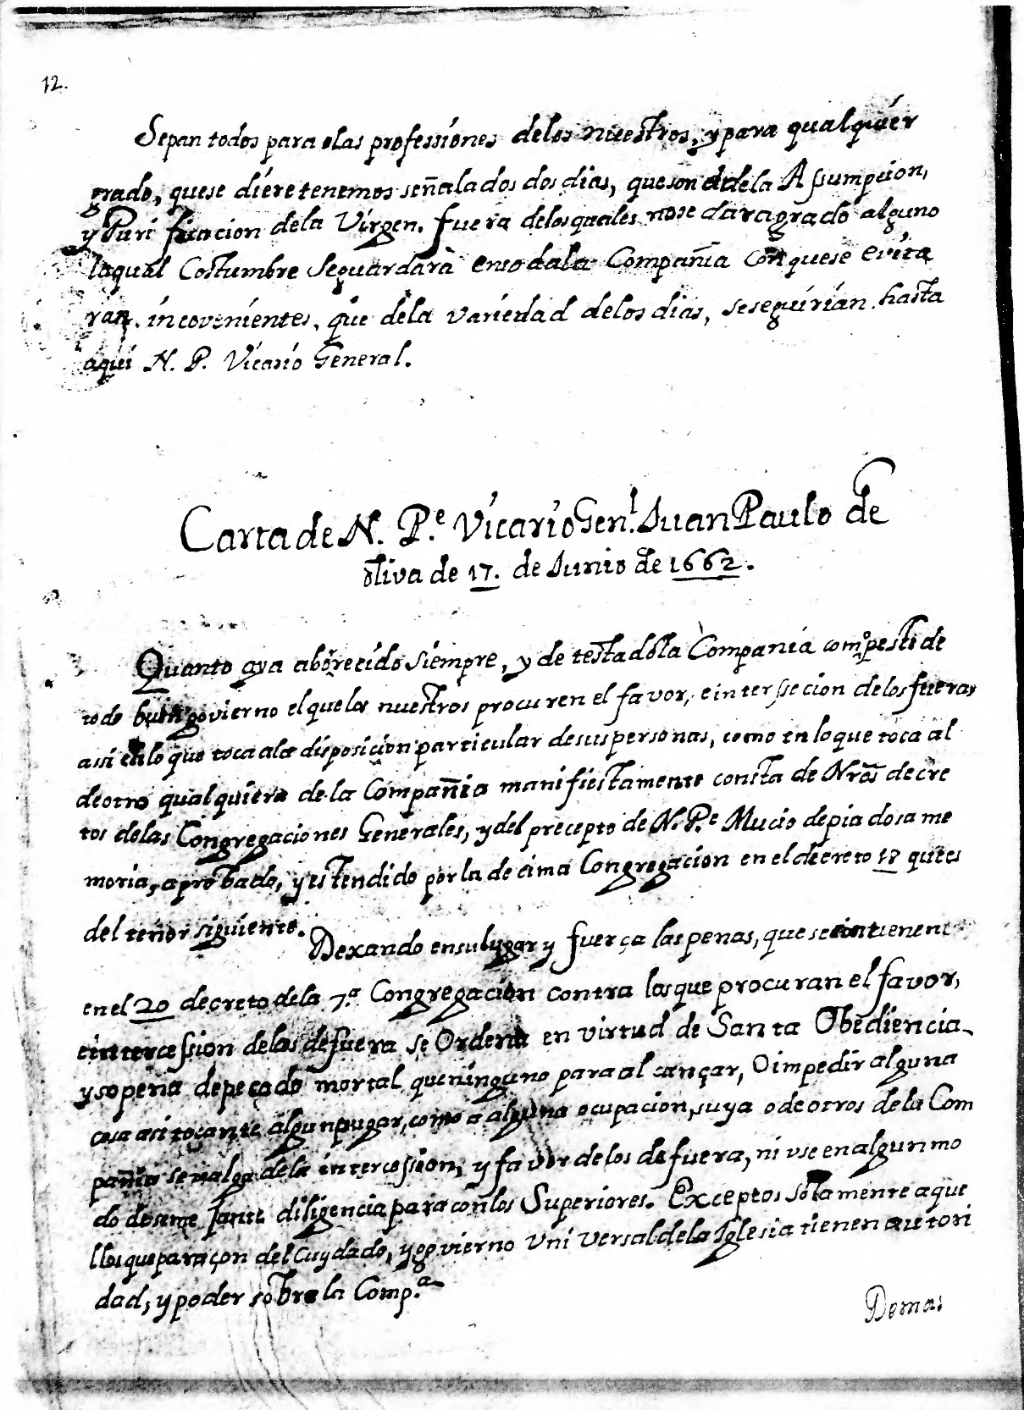 12.
Sepan todos para olas professiones delos nuestros, y para qualquier
grado, quese diere tenemos señalados dos dias, queson dela Assumpcion,
y Purificacion dela Virgen. fuera delosquales nose dara grado alguno
laqual Costumbre Seguardarà entodala Compañia Con quese evita
ràn. incovenientes, que dela variedad delos dias, seseguirian. hasta
aqui N. P. Vicario General.
Carta de N. P.e Vicario Gen.l Juan Paulo de
oliva de 17. de Junio de 1662.
Quanto aya aborrecido siempre, y detestado la Compania como peste de
todo buen govierno el quelos nuestros procuren el favor, e interssecion delos fueras
assi enlo que toca ala disposicion particular desus personas, como en lo que toca al
deotro qualquiera de la Compañia manifiestamente consta de Nros decre
tos delas Congregaciones Generales, y del precepto de N. P.e Mucio depiadosa me
moria, aprobado, y estendido por la decima Congregacion en el decreto 12 que es
del tenor siguiente.
Dexando ensulugar y fuerça las penas, que secontienen
en el 20 decreto dela 7.a Congregacion contra los que procuran el favor,
eintercession delos defuera se Ordena en virtud de Santa Obediencia
y sopena depecado mortal queninguno para alcançar, O impedir alguna
cosa asi tocante algun lugar, como a alguna ocupacion, suya o de otros de la Com
pañia sevalga dela intercesion, y favor delos defuera, ni use en algun mo
do desemejante diligencia para conlos Superiores. Exceptos solamente aque
llos que para con del Cuydado, y govierno Universal dela Iglesia tienen autori
dad, y poder sobre la Comp.a
Demas